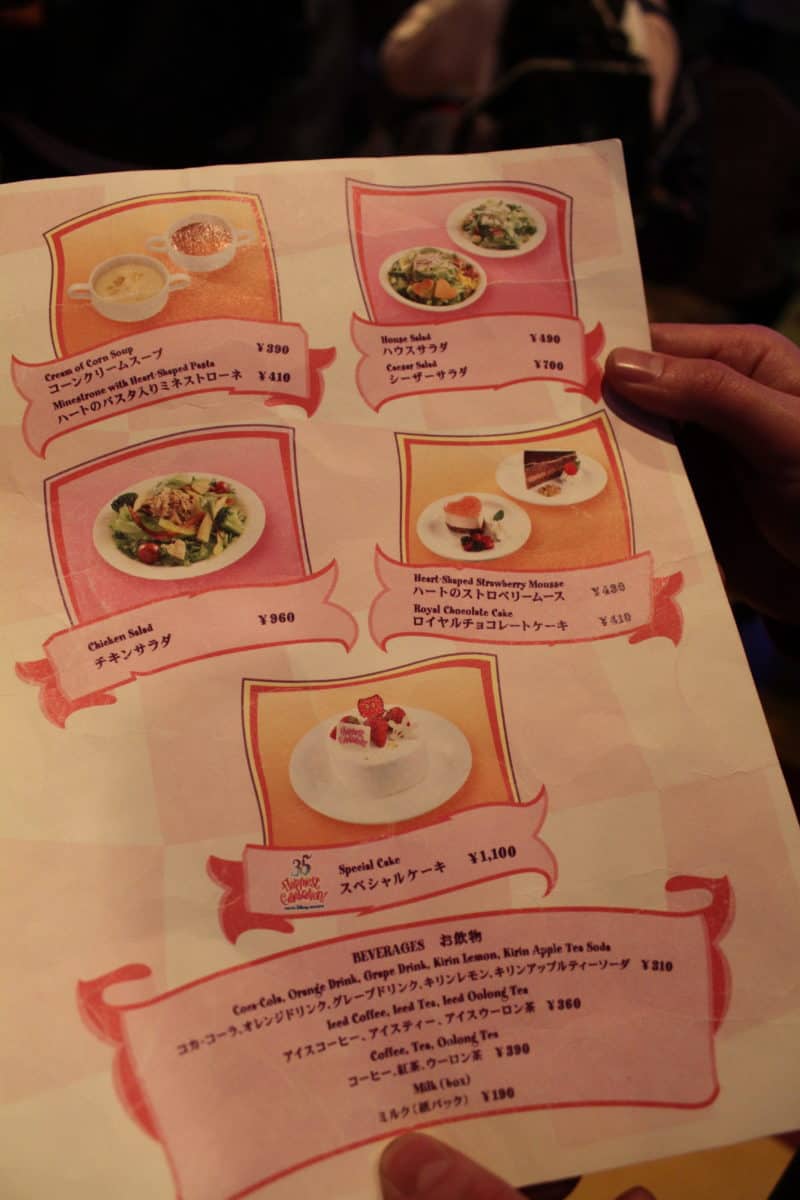 Cream of Corn Soup
コーンクリームスープ ¥390
Minestrone with Heart-Shaped Pasta
ハートのパスタ入りミネストローネ ¥410
House Salad
ハウスサラダ ¥490
Caesar Salad
シーザーサラダ ¥700
Chicken Salad
チキンサラダ ¥960
Heart-Shaped Strawberry Mousse
ハートのストロベリームース ¥430
Royal Chocolate Cake
ロイヤルチョコレートケーキ ¥410
35
Happiest
Celebration!
Special Cake
スペシャルケーキ ¥1,100
BEVERAGES お飲物
Coca-Cola, Orange Drink, Grape Drink, Kirin Lemon, Kirin Apple Tea Soda
コカ・コーラ、オレンジドリンク、グレープドリンク、キリンレモン、キリンアップルティーソーダ ¥310
Iced Coffee, Iced Tea, Iced Oolong Tea
アイスコーヒー、アイスティー、アイスウーロン茶 ¥360
Coffee, Tea, Oolong Tea
コーヒー、紅茶、ウーロン茶 ¥390
Milk (box)
ミルク(紙パック) ¥190